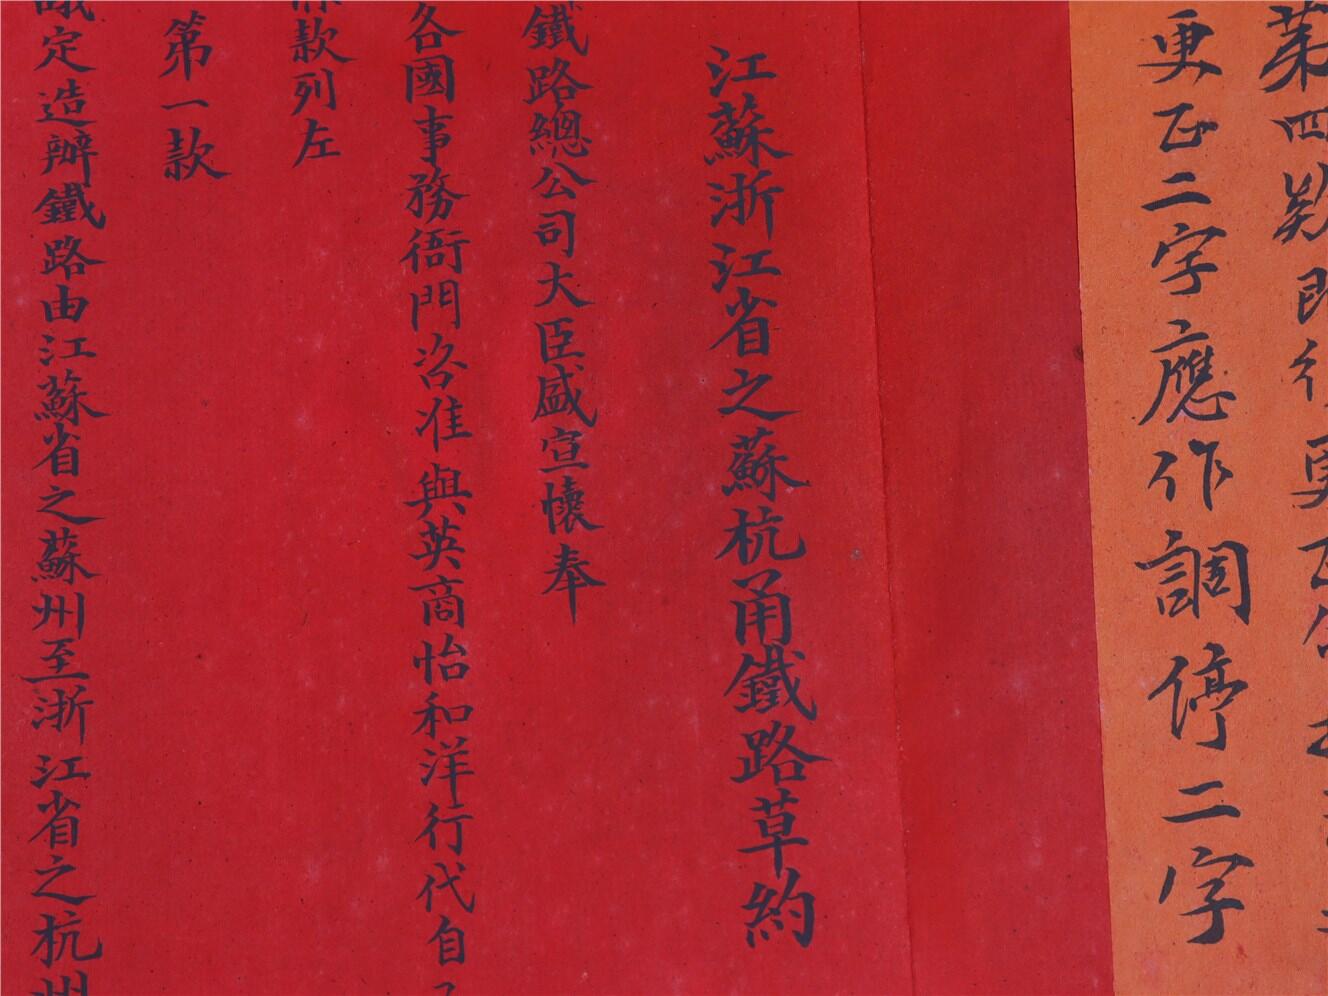 第四款即行更正合
更正二字應作調停二字
江蘇浙江省之蘇杭甬鐵路草約
鐵路總公司大臣盛宣懷奉
各國事務衙門咨准與英商怡和洋行代自
條款列左
第一款
議定造辦鐵路由江蘇省之蘇州至浙江省之杭州